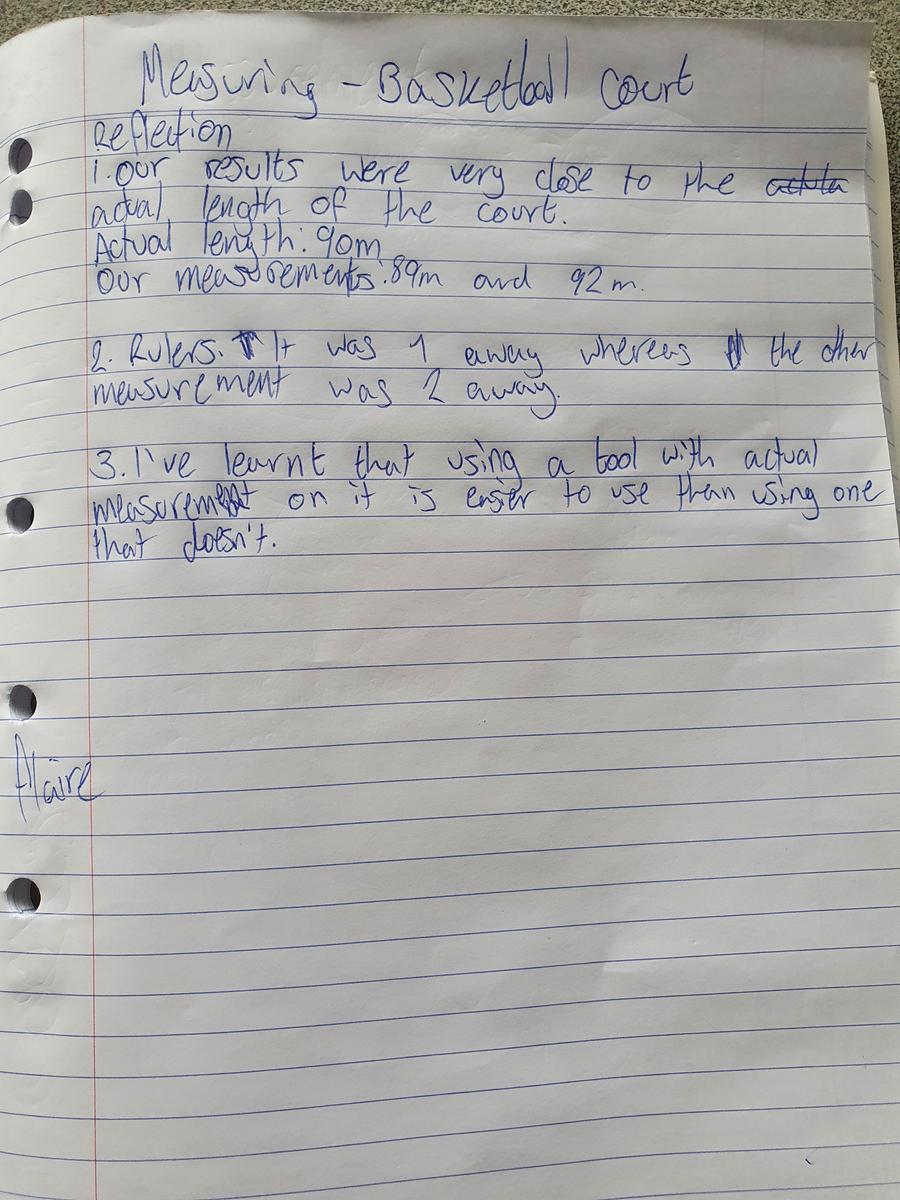 Measuring - Basketball Court
Reflection
1. Our results were very close to the actula
actual length of the court.
Actual length: 90m
Our measurements: 89m and 92m.
2. Rulers. It was 1 away whereas the other
measurement was 2 away.
3. I've learnt that using a tool with actual
measurement on it is easier to use than using one
that doesn't.